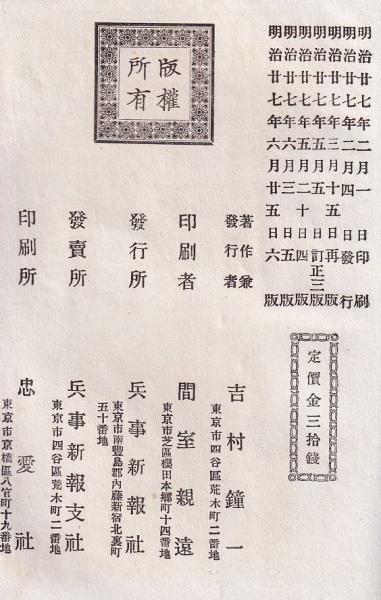 明治廿七年二月一日印刷
明治廿七年二月四日發行
明治廿七年三月十五日再版
明治廿七年五月五日訂正三版
明治廿七年五月二十日四版
明治廿七年六月三日五版
明治廿七年六月廿五日六版
定價金三拾錢
版權
所有
著作兼
發行者
吉村鐘一
東京市四谷區荒木町二番地
印刷者
間室親遠
東京市芝區櫻田本郷町十四番地
發行所
兵事新報社
東京市南豐島郡內藤新宿北裏町
五十番地
發賣所
兵事新報支社
東京市四谷區荒木町二番地
印刷所
忠愛社
東京市京橋區八官町十九番地